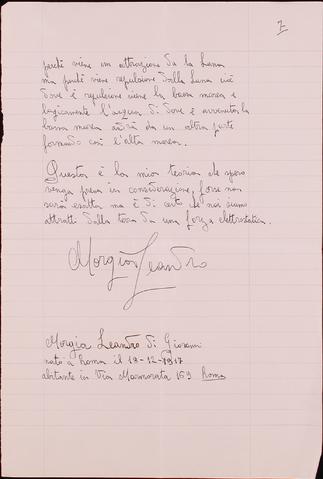 7
perché viene un attrazione da la Luna
ma perché viene repulsione dalla Luna cioè
dove è repulsione viene la bassa marea e
logicamente l'acqua di dove è avvenuta la
bassa marea andrà da un altra parte
formando così l'alta marea.
Questa è la mia teoria che spero
venga presa in considerazione, forse non
sarà esatta ma è di certo che noi siamo
attratti dalla terra da una forza elettrostatica.
Morgia Leandro
Morgia Leandro di Giovanni
nato a Roma il 18-12-1917
abitante in Via Marmorata 169 Roma